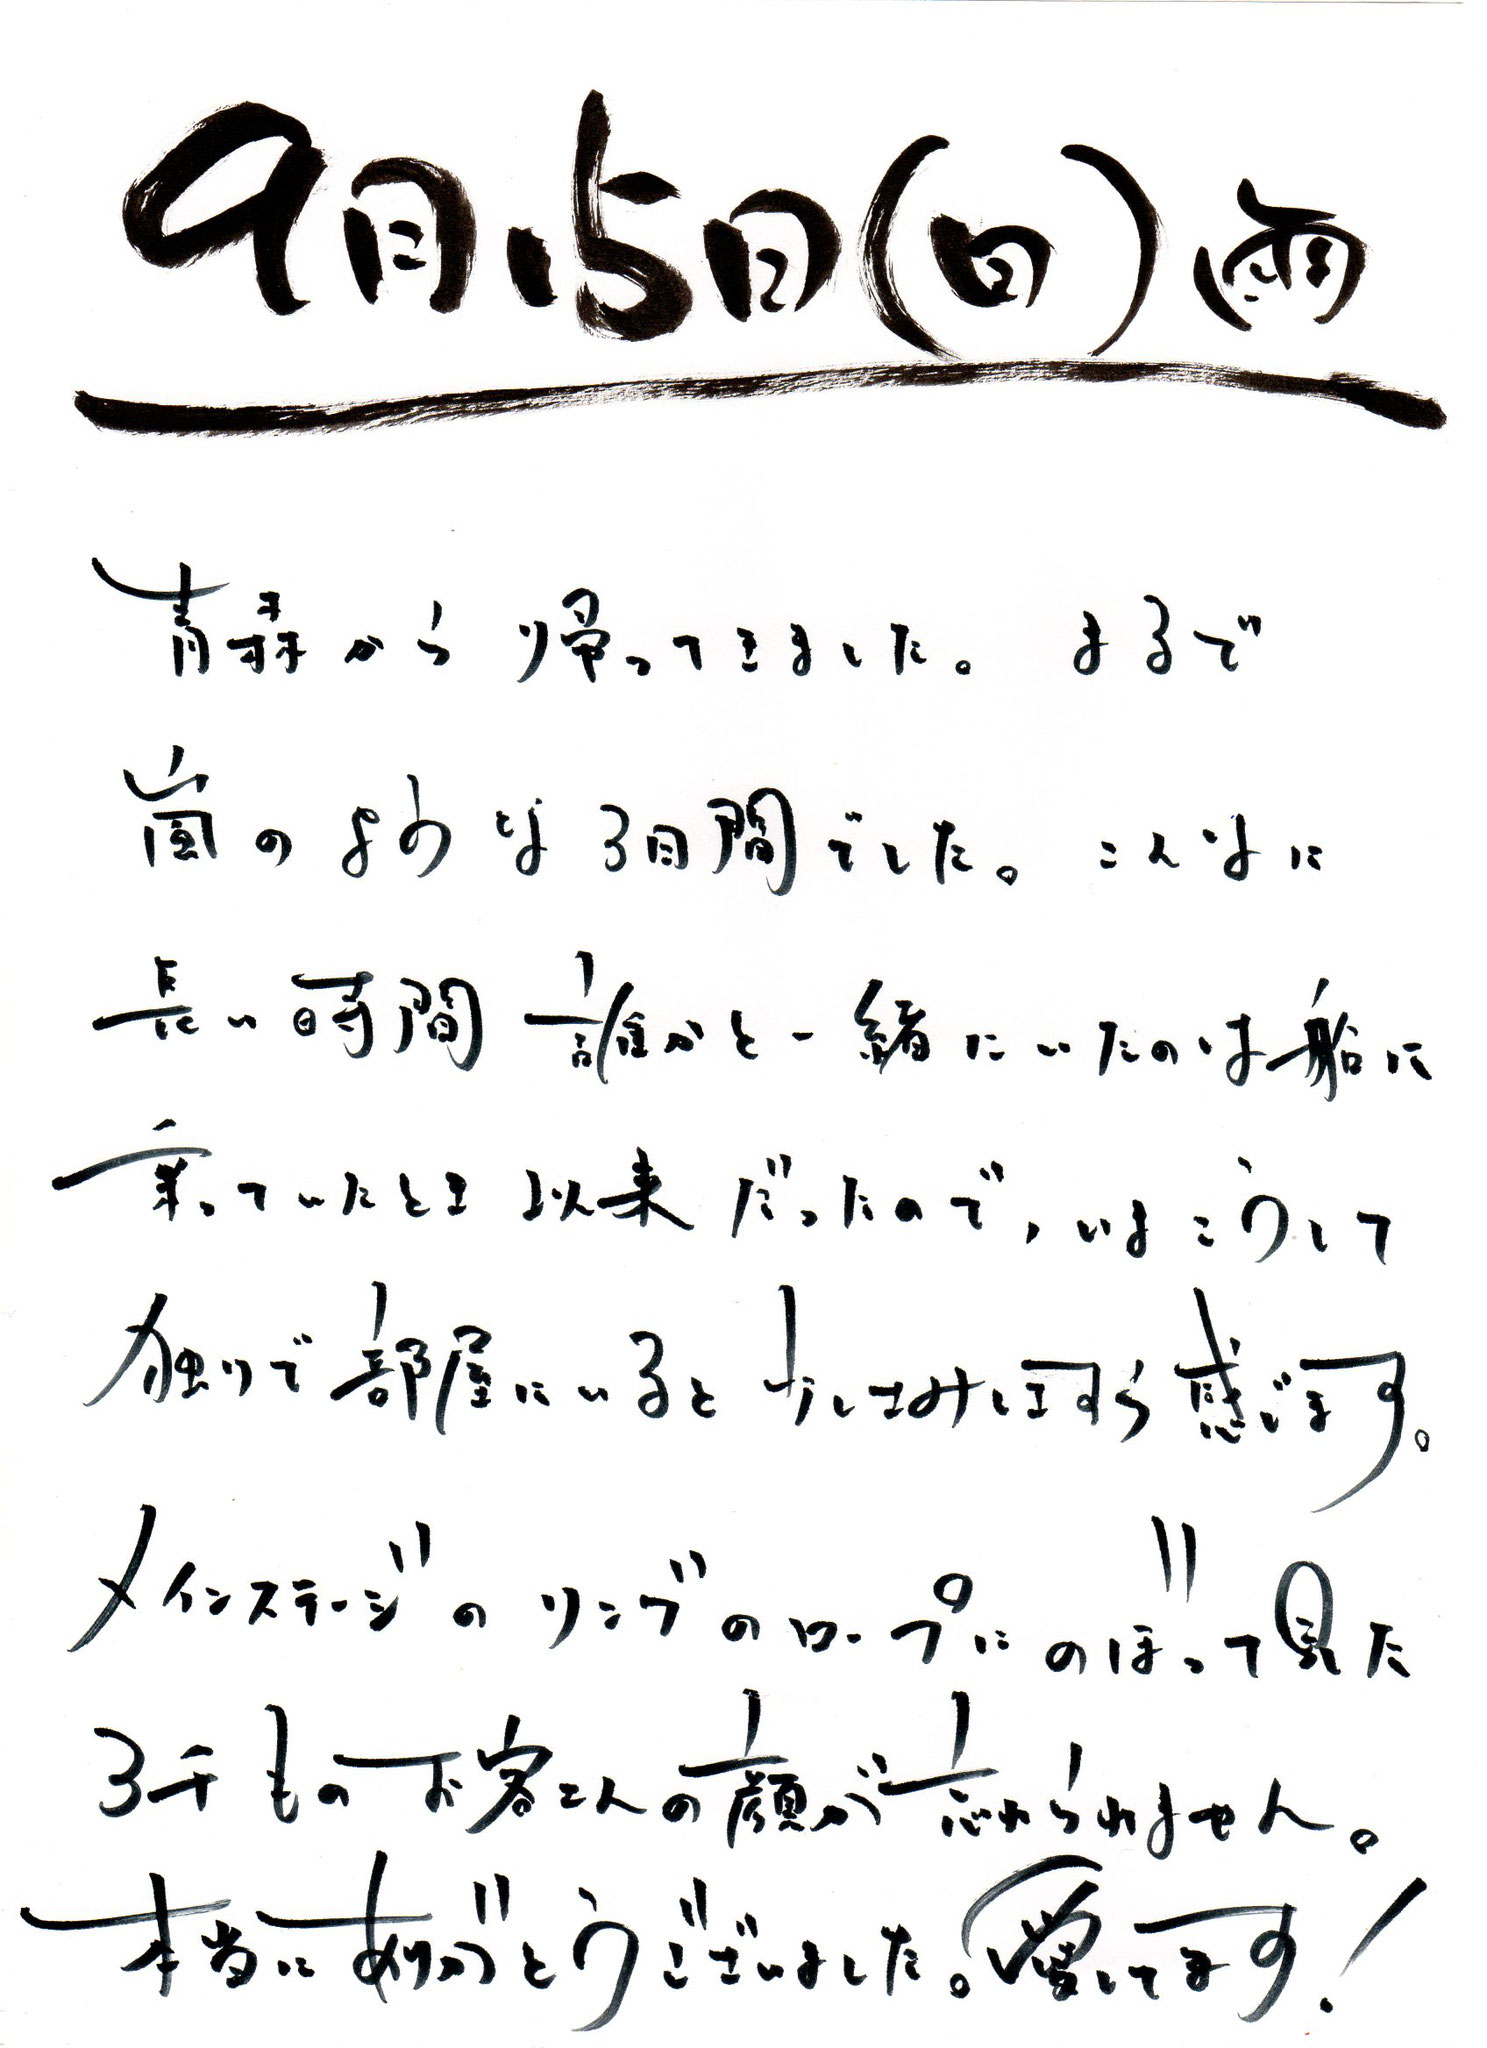 9月15日(日)雨
青森から帰ってきました。まるで
嵐のような3日間でした。こんなに
長い時間誰かと一緒にいたのは船に
乗っていたとき以来だったので、いまこうして
独りで部屋にいると少しさみしさすら感じます。
メインステージのリングのロープにのぼって見た
3千もの お客さんの顔が忘れられません。
本当にありがとうございました。愛してます!